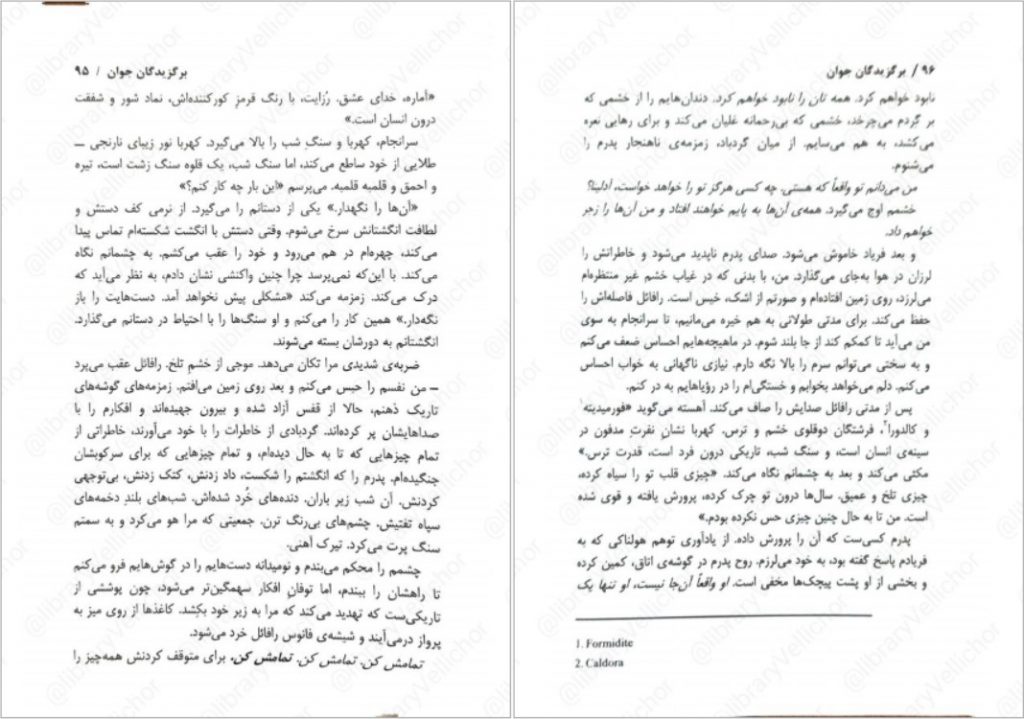 برگزیدگان جوان / ۹۵
«آماره، خدای عشق. رُزایت، با رنگ قرمزِ کورکننده‌اش، نماد شور و شفقت
درون انسان است.»
سرانجام، کهربا و سنگ شب را بالا می‌گیرد. کهربا نور زیبای نارنجی ــ
طلایی از خود ساطع می‌کند، اما سنگ شب، یک قلوه سنگ زشت است، تیره
و احمق و قلمبه قلمبه. می‌پرسم «این بار چه کار کنم؟»
«آن‌ها را نگهدار.» یکی از دستانم را می‌گیرد. از نرمی کف دستش و
لطافت انگشتانش سرخ می‌شوم. وقتی دستش با انگشت شکسته‌ام تماس پیدا
می‌کند، چهره‌ام در هم می‌رود و خود را عقب می‌کشم. به چشمانم نگاه
می‌کند. با این‌که نمی‌پرسد چرا چنین واکنشی نشان دادم، به نظر می‌آید که
درک می‌کند. زمزمه می‌کند «مشکلی پیش نخواهد آمد. دست‌هایت را باز
نگه‌دار.» همین کار را می‌کنم و او سنگ‌ها را با احتیاط در دستانم می‌گذارد.
انگشتانم به دورشان بسته می‌شوند.
ضربه‌ی شدیدی مرا تکان می‌دهد. موجی از خشمِ تلخ. رافائل عقب می‌پرد
ــ من نفسم را حبس می‌کنم و بعد روی زمین می‌افتم. زمزمه‌های گوشه‌های
تاریک ذهنم، حالا از قفس آزاد شده و بیرون جهیده‌اند و افکارم را با
صداهایشان پر کرده‌اند. گردبادی از خاطرات را با خود می‌آورند، خاطراتی از
تمام چیزهایی که تا به حال دیده‌ام، و تمام چیزهایی که برای سرکوبشان
جنگیده‌ام. پدرم را که انگشتم را شکست، داد زدنش، کتک زدنش، بی‌توجهی
کردنش. آن شب زیر باران. دنده‌های خُرد شده‌اش. شب‌های بلندِ دخمه‌های
سیاه تفتیش. چشم‌های بی‌رنگ ترن. جمعیتی که مرا هو می‌کرد و به سمتم
سنگ پرت می‌کرد. تیرک آهنی.
چشمم را محکم می‌بندم و نومیدانه دست‌هایم را در گوش‌هایم فرو می‌کنم
تا راهشان را ببندم، اما توفانِ افکار سهمگین‌تر می‌شود، چون پوششی از
تاریکی‌ست که تهدید می‌کند که مرا به زیر خود بکشد. کاغذها از روی میز به
پرواز درمی‌آیند و شیشه‌ی فانوس رافائل خرد می‌شود.
تمامش کن. تمامش کن. تمامش کن. برای متوقف کردنش همه‌چیز را
۹۶ / برگزیدگان جوان
نابود خواهم کرد. همه تان را نابود خواهم کرد. دندان‌هایم را از خشمی که
بر گِردم می‌چرخد، خشمی که بی‌رحمانه غلیان می‌کند و برای رهایی نعره
می‌کشد، به هم می‌سایم. از میان گردباد، زمزمه‌ی ناهنجار پدرم را
می‌شنوم.
من می‌دانم تو واقعاً که هستی. چه کسی هرگز تو را خواهد خواست، آدلینا؟
خشمم اوج می‌گیرد. همه‌ی آن‌ها به پایم خواهند افتاد و من آن‌ها را زجر
خواهم داد.
و بعد فریاد خاموش می‌شود. صدای پدرم ناپدید می‌شود و خاطراتش را
لرزان در هوا به‌جای می‌گذارد. من، با بدنی که در غیاب خشم غیر منتظره‌ام
می‌لرزد، روی زمین افتاده‌ام و صورتم از اشک، خیس است. رافائل فاصله‌اش را
حفظ می‌کند. برای مدتی طولانی به هم خیره می‌مانیم، تا سرانجام به سوی
من می‌آید تا کمکم کند از جا بلند شوم. در ماهیچه‌هایم احساس ضعف می‌کنم
و به سختی می‌توانم سرم را بالا نگه دارم. نیازی ناگهانی به خواب احساس
می‌کنم. دلم می‌خواهد بخوابم و خستگی‌ام را در رؤیاهایم به در کنم.
پس از مدتی رافائل صدایش را صاف می‌کند. آهسته می‌گوید «فورمیدیته¹
و کالدورا²، فرشتگان دوقلوی خشم و ترس. کهربا نشانِ نفرتِ مدفون در
سینه‌ی انسان است، و سنگ شب، تاریکی درون فرد است، قدرت ترس.»
مکثی می‌کند و بعد به چشمانم نگاه می‌کند. «چیزی قلب تو را سیاه کرده،
چیزی تلخ و عمیق. سال‌ها درون تو چرک کرده، پرورش یافته و قوی شده
است. من تا به حال چنین چیزی حس نکرده بودم.»
پدرم کسی‌ست که آن را پرورش داده. از یادآوری توهم هولناکی که به
فریادم پاسخ گفته بود، به خود می‌لرزم. روح پدرم در گوشه‌ی اتاق، کمین کرده
و بخشی از او پشت پیچک‌ها مخفی است. او واقعاً آن‌جا نیست، او تنها یک
1. Formidite
2. Caldora
@libraryVellichor